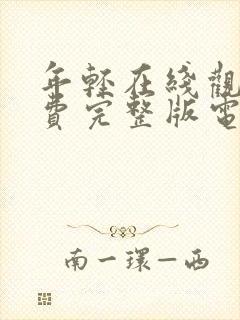 年輕在綫觀
費完整版電
南一環—西